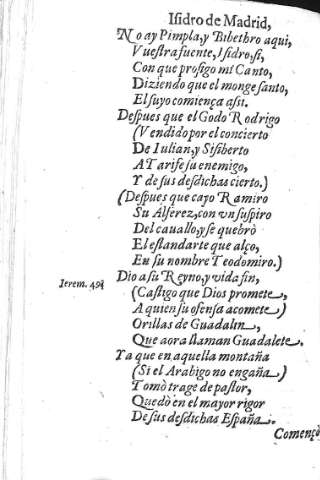 Isidro de Madrid,
No ay Pimpla, y Bibethro aqui,
Vuestra fuente, Isidro, si,
Con que prosigo mi Canto,
Diziendo que el monge santo,
El suyo comiença assi.
Despues que el Godo Rodrigo
(Vendido por el concierto
De Iulian, y Sisiberto
A Tarife su enemigo,
Y de sus desdichas cierto.)
(Despues que cayo Ramiro
Su Alferez, con vn suspiro
Del cauallo, y se quebrò
El estandarte que alço,
En su nombre Teodomiro.)
Ierem. 49.
Dio a su Reyno, y vida fin,
(Castigo que Dios promete,
A quien su ofensa acomete)
Orillas de Guadalin,
Que aora llaman Guadalete.
Ya que en aquella montaña
(Si el Arabigo no engaña)
Tomò trage de pastor,
Quedò en el mayor rigor
De sus desdichas España.
Començò